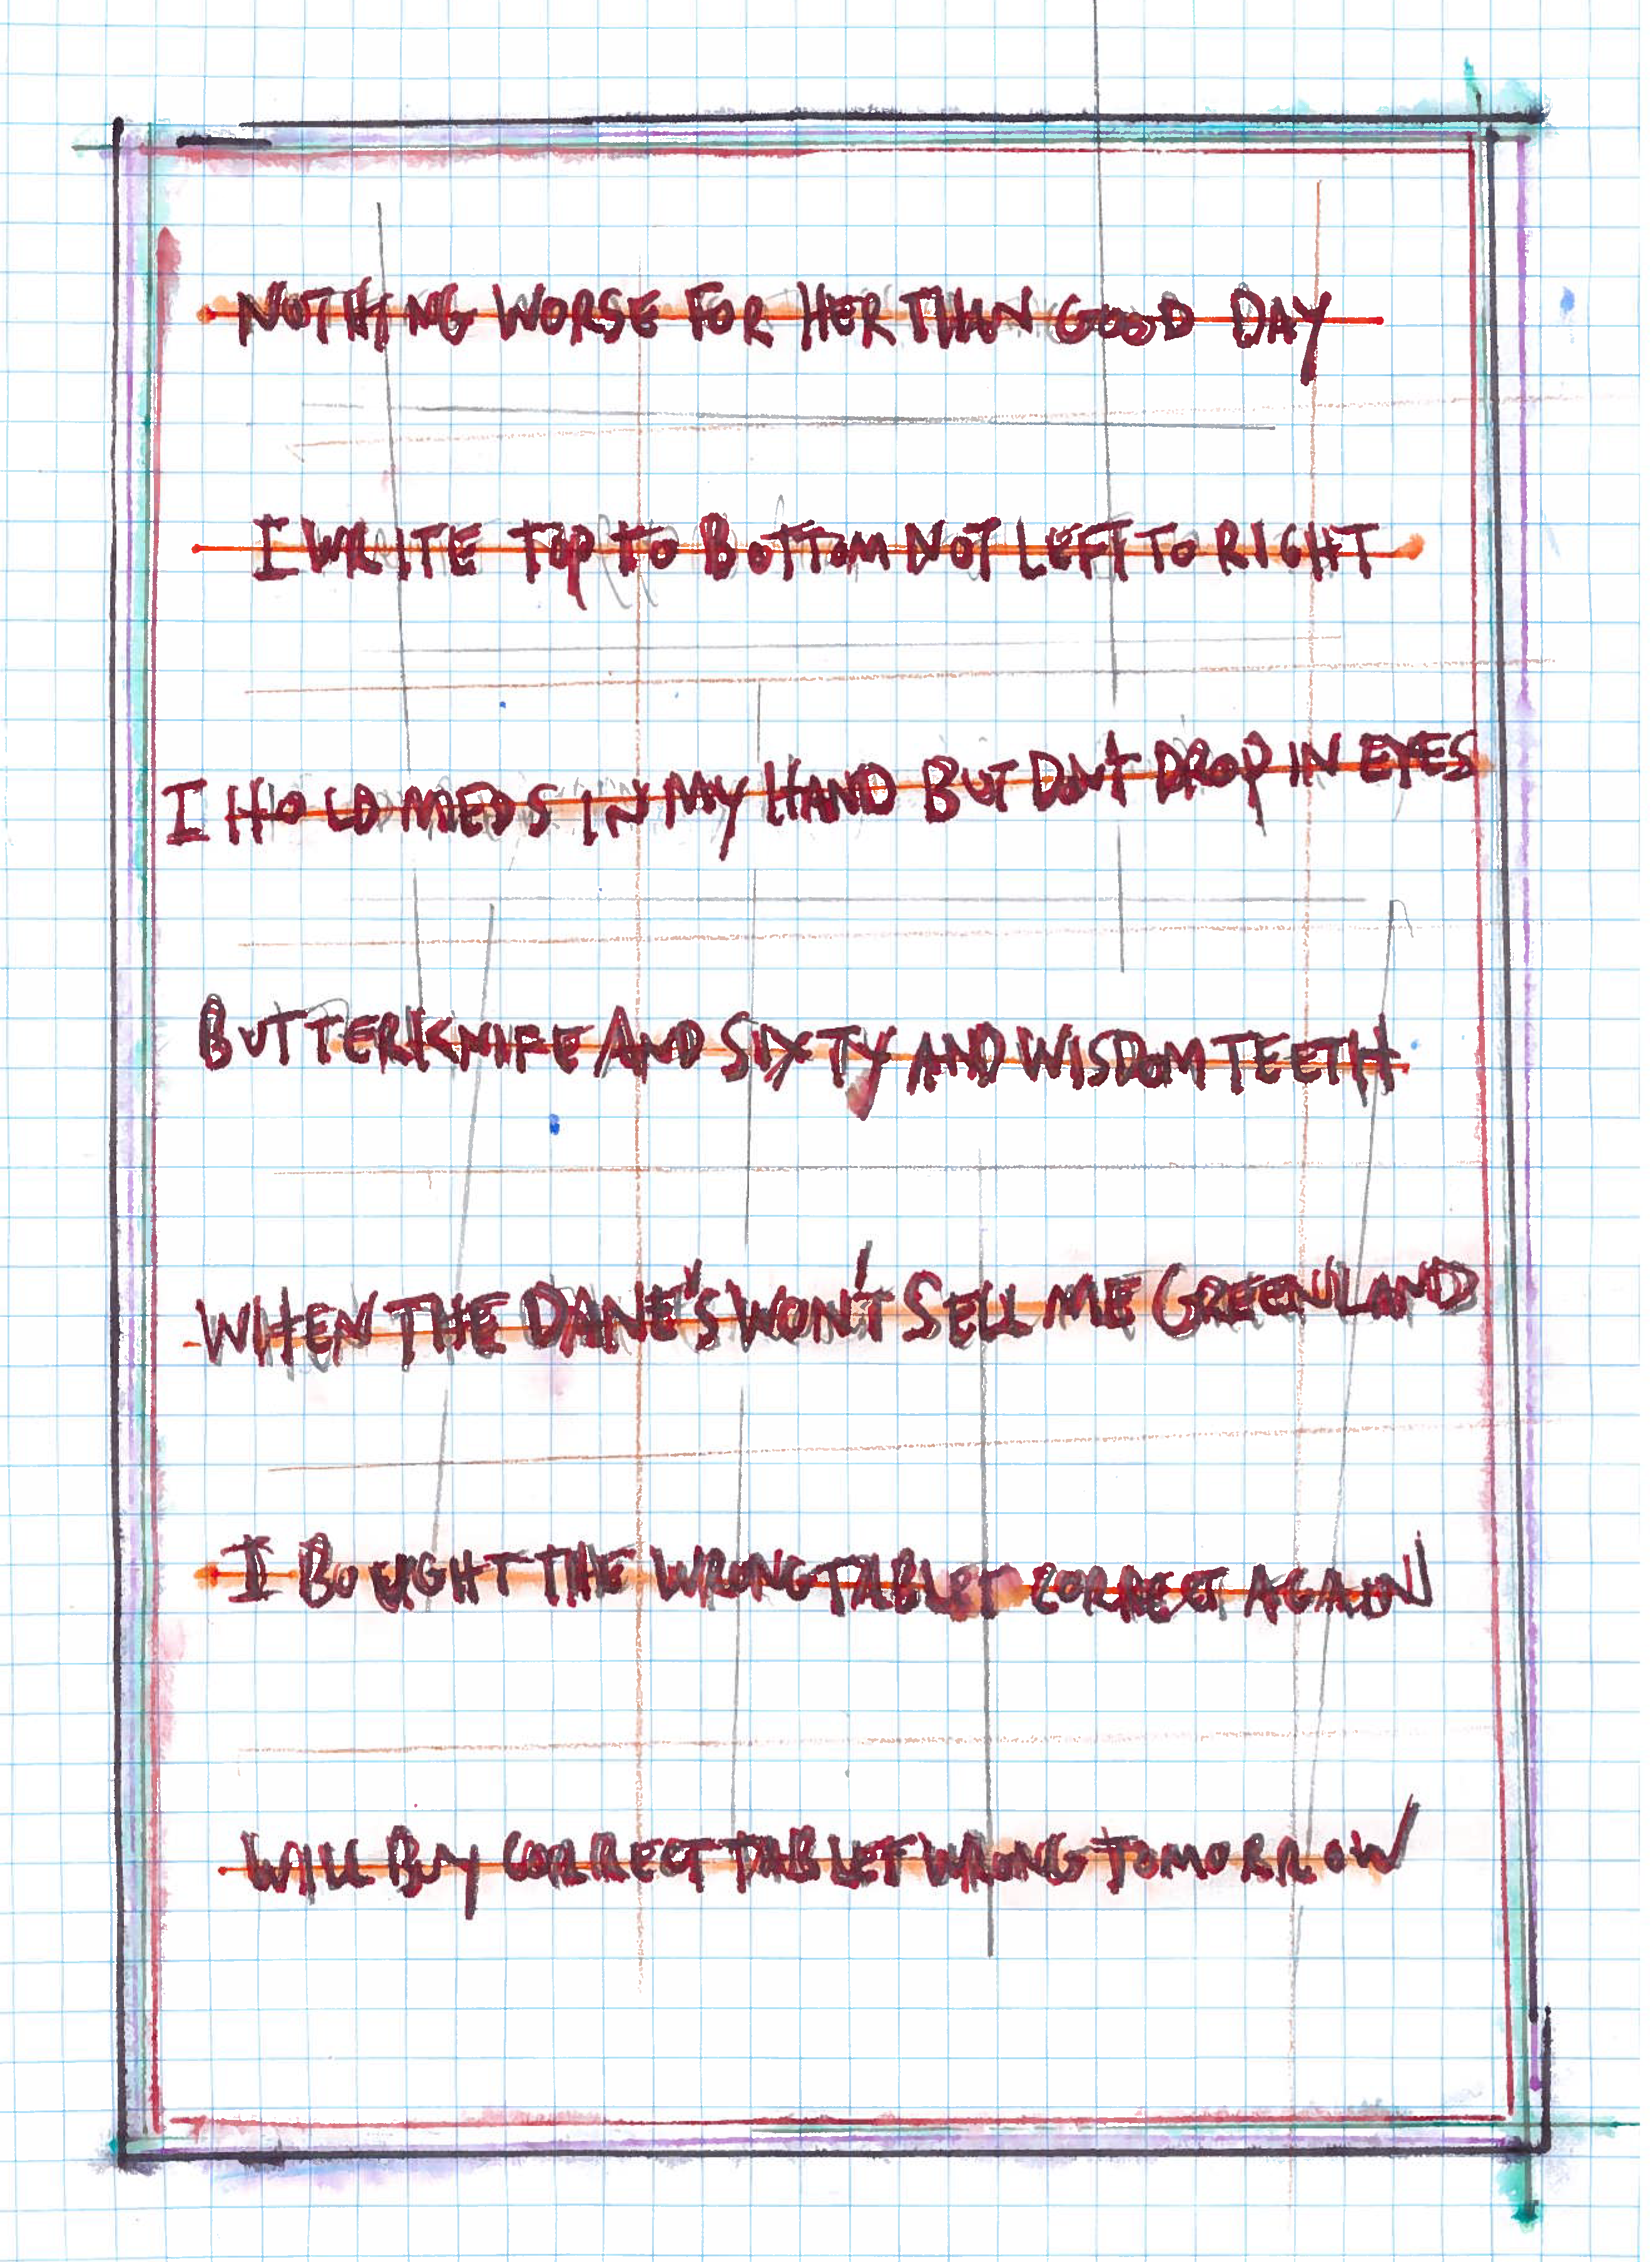 NOTHING WORSE FOR HER THAN GOOD DAY
I WRITE TOP TO BOTTOM NOT LEFT TO RIGHT
I HOLD MEDS IN MY HAND BUT DON'T DROP IN EYES
BUTTERKNIFE AND SIXTY AND WISDOM TEETH
WHEN THE DANE'S WON'T SELL ME GREENLAND
I BOUGHT THE WRONG TABLET CORRECT AGAIN
WILL BUY CORRECT TABLET WRONG TOMORROW